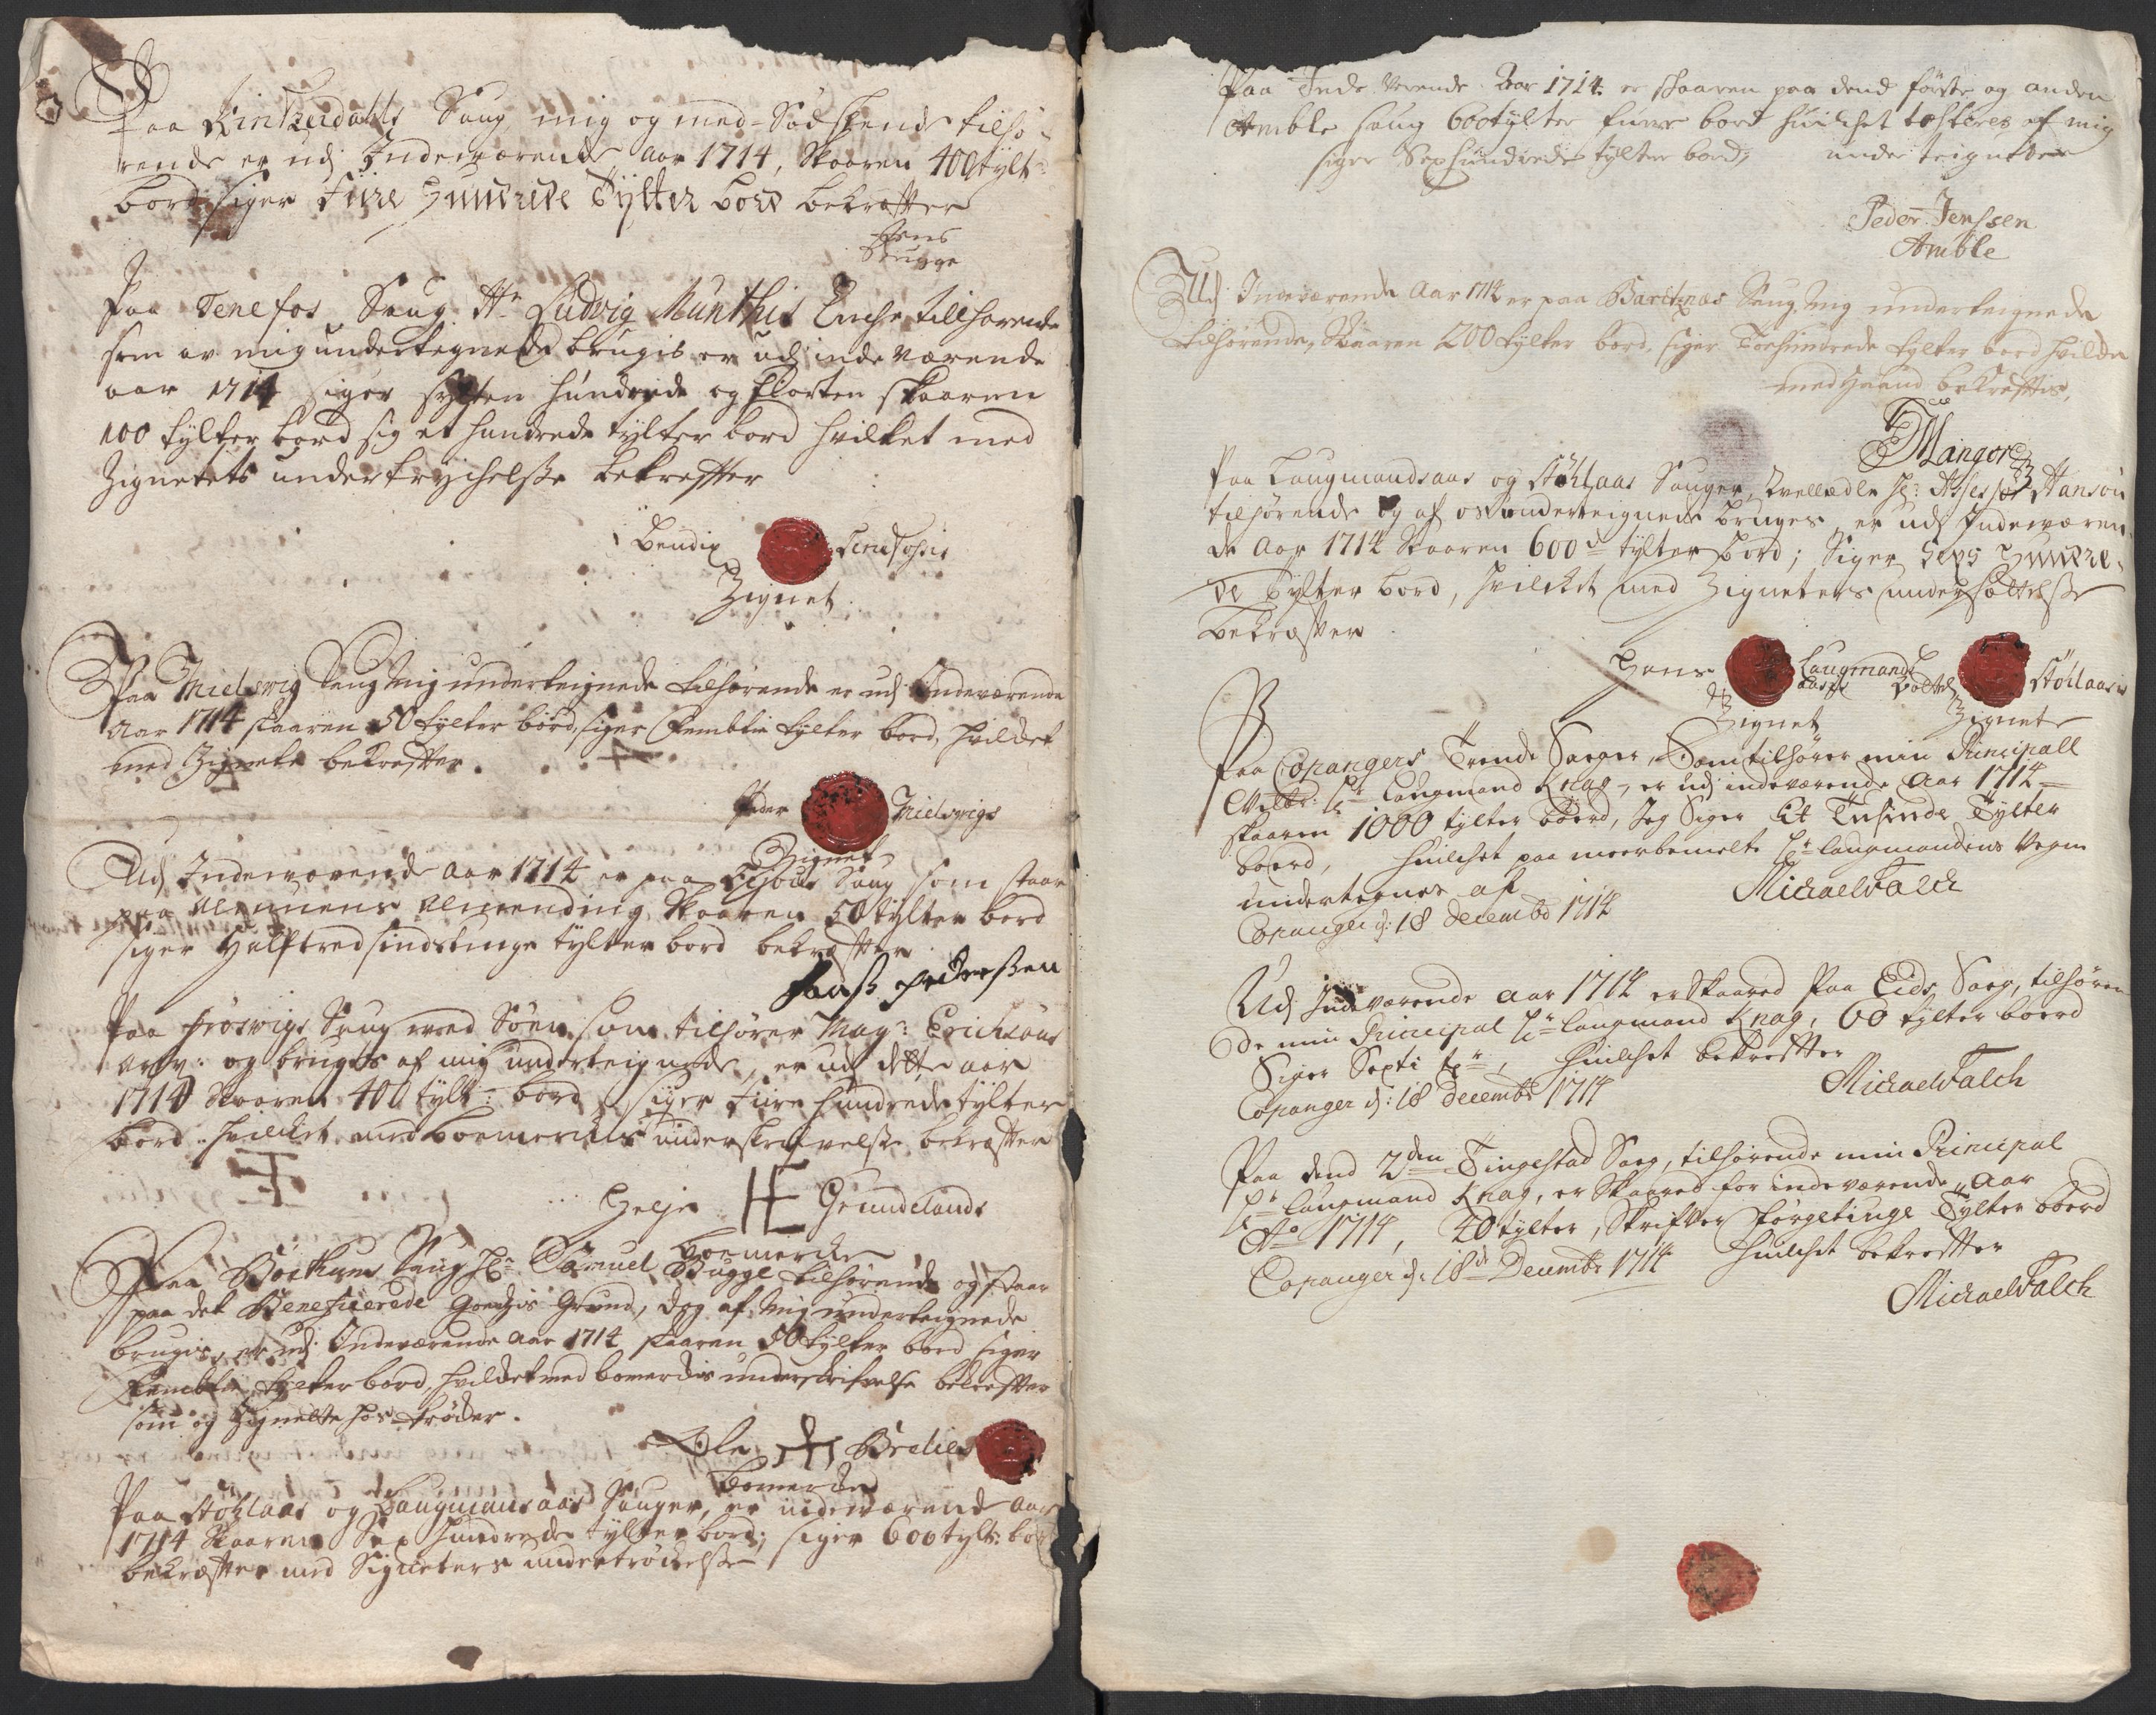 Paa Rinkeidahls Saug, mig og med-Södskende tilhö-
rende er udj Indeværende Aar 1714, Skaaren 400 tylt:
bord siger fiire Hundrede Tÿlter bord bekræfter
Jens
Brugge
Paa Tenefos Saug Hr Ludvig Munthis Enche tillhörende
som av mig undertegnede brugis er udj inde værende
aar 1714 siger sÿtten hundrede og fiorten skaaren
100 tylter bord sig et hundrede tylter bord hvilket med
Zignetets undertrychelsse bekreffter
Bendix Tenefossis
Zignet
Paa Mielswig Saug Mig underteignede tilhörende er udj Indeværende
Aar 1714 skaaren 50 tylter bord, siger Femtie tylter bord, hvilket
med Zignete bekreffter.
Peder Mielswigs
Zignet
Udj Indeværende Aar 1714 er paa Saug som staar
paa Almenning Skaaren 50 tylter bord
siger Halftredsindstinge tylter bord bekræfter
Hanß Pederßen
Paa Fröswigs Saug ved Söen, som tilhörer Mag: Erichsöns
Arv: og bruges af mig underteignede, er udj dette aar
1714 Skaaren 400 tylt: bord, siger fiire hundrede tylter
bord. hvilket med boemerckes underskrivelsse bekræfter
Helje HE Grundelands
boemerke
Paa Böthums Saug Hr: Samuel Bugge tilhörende og staar
paa det Beneficerede Goedzis Grund, dog af Mig underteignede
brugis, er udj Indeværende Aar 1714 skaaren 50 tylter bord siger
Femtie tylter bord, hvilket med bomerckis underskrifvelse bekreffter
som og Zignette hos trÿder.
Ole Brelies
bomercke
Paa Stöhlaas og Laugmandsaas Sauger, er indeværende aar
1714 Skaaren Sex hundrede tylter bord; siger 600 tylt: bord
bekræfter med Signeters undertröckelsse
Paa Inde Værende Aar 1714 er skaaren paa dend förste og anden
Amble saug 600 tylter furre bord huilchet tilstaaes af mig
siger Sexhundrede tylter bord, under teigneder
Peder Jenssen
Amble
Udj Indeværende Aar 1714 er paa Baretznæs Saug, Mig underteignede
tilhörende, Skaaren 200 tylter bord, siger Toehundrede tylter bord hvilcke
med Haand bekreftis,
Mangor
Paa Laugmandsaas og Stöhlaas Sauger, Welædle Hr: Assessor Hansön
tilhörende og af os underteignede bruges, er udj Indeværen-
de Aar 1714 Skaaren 600de tylter bord; Siger Sexs Hundre-
de Tylter bord, hvilcket med Zigneters undersættelsse
bekræfter
Hans Laugmands
aasis
Zignet
Botel Stöhlaasis
Zignet
Paa Copangers Trende Sauger, Som tilhörer min Principall
Velbr: Hr Laugmand Knag, er udj indeværende Aar 1714
skaaren 1000 tylter boerd, Jeg Siger Et Tusinde Tylter
boerd, huilchet paa meerbemelte Hr Laugmandens Vegne
undertegnes af
Copanger d: 18 Decembr 1714
Michael Falch
Udj Indeværende Aar 1714 er Skaared Paa Eids Saug, tilhören-
de min Principal Hr Laugmand Knag, 60 tylter boerd
Siger Sexti tr, huilchet bekreffter
Copanger d: 18 Decembr 1714
Michael Falch
Paa dend 2den Tingestad Saug, tilhörende min Principal
Hr Laugmand Knag, er Skaared for indeværende Aar
Ao 1714, 40 tylter, Skrifver förgetiuge Tylter boerd
huilchet bekreffter
Copanger d: 18de Decembr 1714
Michael Falch